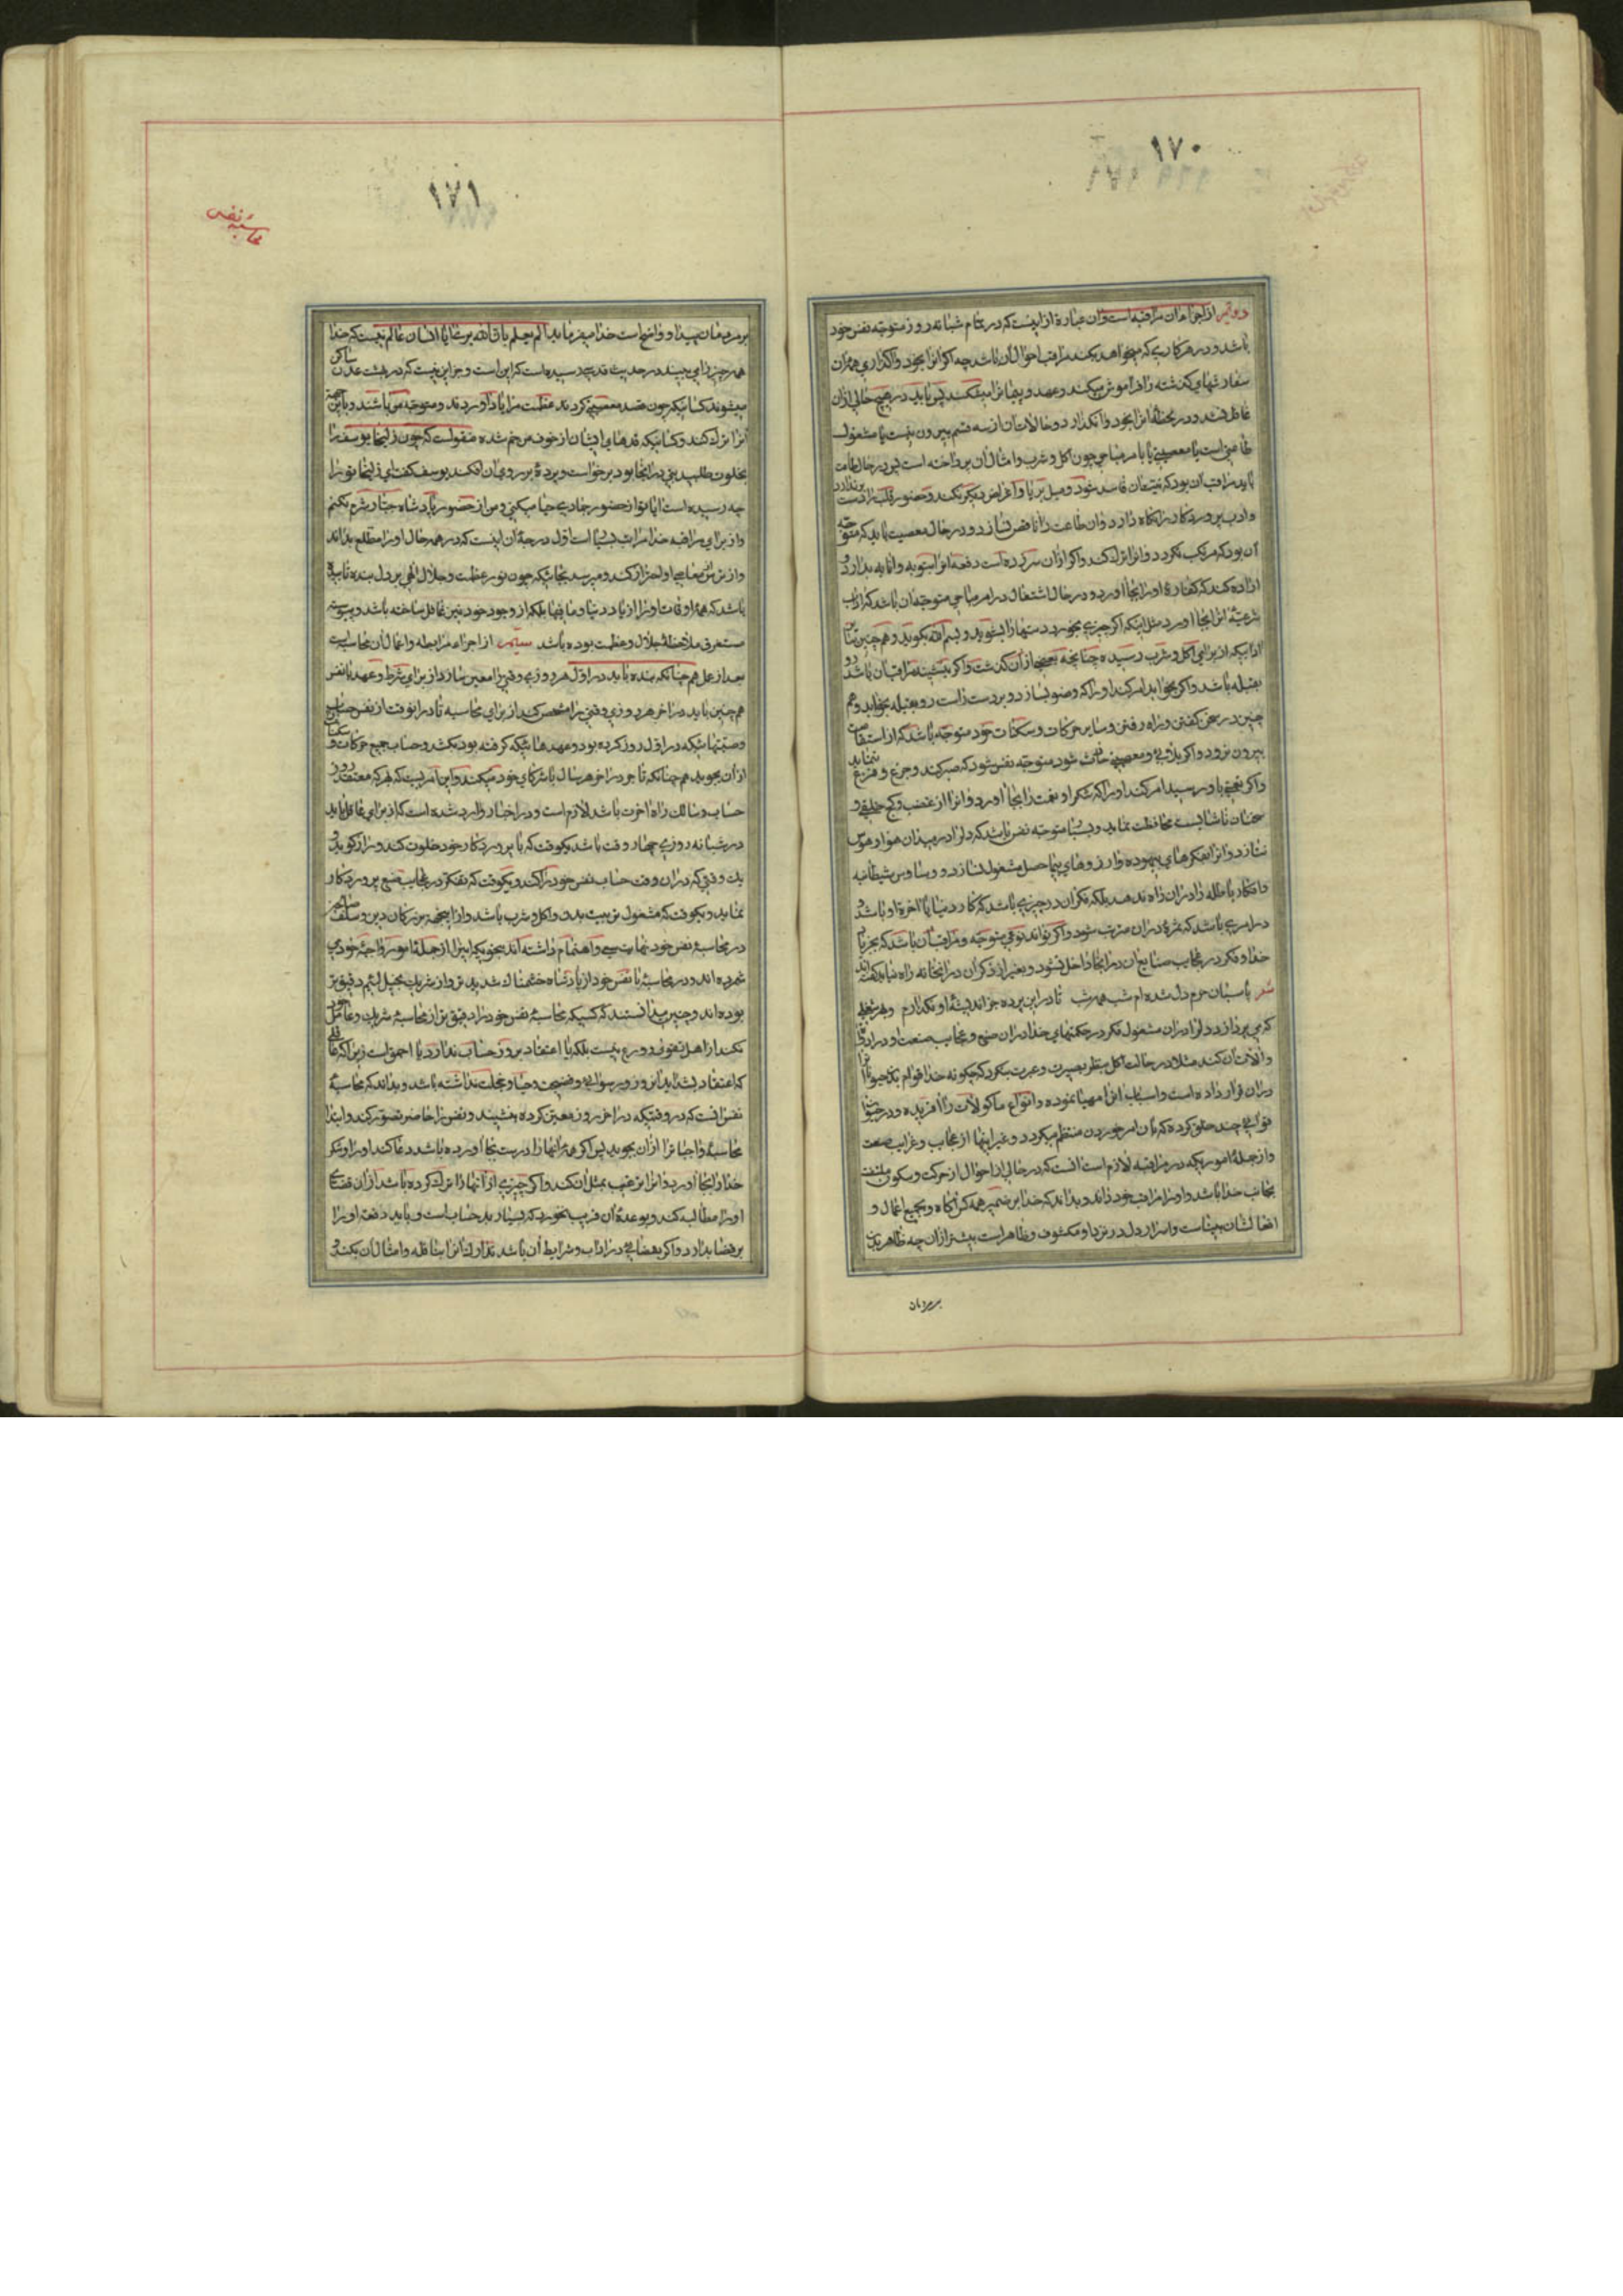 ۱۷۰
دویّم از اجزاء ان مراقبه است و ان عبارة از اینست که در تمام شبانه روز متوجّه نفس خود
باشد و در هر کاری که میخواهد بکند مراقب احوال آن باشد چه اکر انرا بخود واکذاری همۀ آن
سفارشهای کذشته را فراموش میکند و عهد و پیمانرا میشکند پس باید در هیچ حالی از ان
غافل نشد و در یک لحظه انرا بخود وانکذارد و حالات ان از سه قسم بیرون نیست یا مشغول
طاعتی است یا معصیتی یا بامر مباحی چون اکل و شرب و امثال آن پرداخته است پس در حال طاعت
باید مراقب ان بود که نیتشان فاسد نشود و میل بریا و اغراض دیکر نکند و حضور قلب را از دست برندارد
و ادب پروردکار را نکاه دارد و ان طاعت را ناقص نسازد و در حال معصیت باید که متوجّه
آن بود که مرتکب نکردد و انرا ترک کند و اکر از ان سر زده است دفعه انرا بتوبه و انابه بدارد و
اراده کند که کفارۀ اورا بجا اورد و در حال اشتغال در امر مباحی متوجّه ان باشد که اداب
شرعیّۀ انرا بجا اورد مثل اینکه اکر چیزی بخورد دستها را بشوید و بسم الله بکوید و هم چنین سایر
ادابیکه از برای اکل و شرب رسیده چنانچه بعضی از آن کذشت و اکر بنشیند مراقب ان باشد رو
بقبله باشد و اکر بخوابد امر کند او را که وضو بسازد و بر دست راست رو بقبله بخوابد و هم
چنین در سخن کفتن و راه رفتن و سایر حرکات و سکنات خود متوجّه باشد که از استقامت
بیرون نرود و اکر بلائی و مصیبتی حادث شود متوجّه نفس شود که صبر کند و جزع و فزع ننماید
و اکر نعمتی باو رسید امر کند او را که شکر او نعمت را بجا اورد و انرا از غضب و کج خلقی و
سخنان ناشایست محافظت نماید و بسیار متوجّه نفس باشد که دلرا در میدان هوا و هوس
نتازد و انرا بفکرهای بیهوده و ارزوهای بیحاصل مشغول نسازد و وساوس شیطانیه
و افکار باطله را در ان راه ندهد بلکه فکر ان در چیزی باشد که کار دنیا یا اخرة او باشد و
در امری باشد که ثمرۀ در ان مترتب شود و اکر تواند نوعی متوجّه و مراقب آن باشد که بجز یاد
خدا و فکر در عجایب صنایع ان در انجا داخل نشود و بغیر از ذکر آن در انخانه راه نیابد کفته اند
شعر پاسبان حرم دل شده ام شب همه شب تا در این پرده جز اندیشۀ او نکذارم و بهر شغلی
که می پردازد دلرا در ان مشغول فکر در حکمتهای خدا در ان صنع و عجایب صنعت او در اداب
و الات آن کند مثلا در حالت اکل بنظر بصیرت و عبرت بنکرد که چکونه خدا قوام بدن حیوانرا
در ان قرار داده است و اسباب انرا مهیا نموده و انواع ماکولات را افریده و در حیوان
قوائی چند خلق کرده که بآن امر خوردن منتظم میکردد و غیر اینها از عجایب و غرایب صنعت
و از جملۀ اموریکه در مراقبه لازم است انست که در حالی از احوال از حرکت و سکون ملتفت
بجانب خدا باشد و او را مراقب خود داند و بداند که خدا بر ضمیر همه کس آکاه و بجمیع اعمال و
افعالشان بیناست و اسرار دل در نزد او مکشوف و ظاهر است بیشتر از ان چه ظاهر بدن
بر مردمان
۱۷۱
محاسبه نفس
بر مردمان پیدا و واضح است خدا میفرماید الم یعلم بان الله یری ایا انسان عالم نیست که خدا
همه چیز را می بیند در حدیث قدسی رسیده است که این است و جز این نیست که در بهشت عدن ساکن
میشوند کسانیکه چون قصد معصیتی کردند عظمت مرا یاد اوردند و متوجّه من باشند و باین جهة
انرا ترک کند و کسانیکه قدهای ایشان از خوف من خم شده منقولست که چون زلیخا یوسف را
بخلوت طلبید بتی در انجا بود برخواست و پردۀ بر روی ان افکند یوسف کفت ای زلیخا تو را
چه رسیده است ایا تو از حضور جمادی حیا میکنی و من از حضور پادشاه جبار شرم نکنم
و از برای مراقبه خدا مراتب بسیار است اوّل درجۀ ان اینست که در همه حال او را مطلع بداند
و از ترس ان معاصی او احتراز کند و میرسد بجائیکه چون نور عظمت و جلال الهی بر دل بنده تابیده
باشد که همۀ اوقات او را از یاد دنیا و ما فیها بلکه از وجود خود نیز غافل ساخته باشد و پیوسته
مستغرق ملاحظۀ جلال و عظمت بوده باشد سیّم از اجزاء مرابطه و اعمال آن محاسبه است
بعد از عمل هم چنانکه بنده باید در اوّل هر روزی وقتی را معین سازد از برای شرط و عهد با نفس
هم چنین باید در اخر هر روزی وقتی را مشخص کند از برای محاسبه تا در انوقت از نفس حساب
وصیتهائیکه در اوّل روز کرده بود و عهدهائیکه کرفته بود بکشد و حساب جمیع حرکات و سکنات
از آن بجوید هم چنانکه تاجر در اخر هر سال با شرکای خود میکند و این امریست که بر هر که معتقد روز
حساب و سالک راه اخرت باشد لازم است و در اخبار وارد شده است که از برای عاقل باید
در شبانه روزی چهار وقت باشد یکوقت که با پروردکار خود خلوت کند و راز کوید و
یک وقتی که در ان وقت حساب نفس خود را کند و یکوقت که تفکر در عجایب صنع پروردکار
نماید و یکوقت که مشغول تربیت بدن و اکل و شرب باشد و از اینجهة بزرکان دین و سلف صالحین
در محاسبۀ نفس خود نهایت سعی و اهتمام داشته اند بنحویکه اینرا از جملۀ امور واجبۀ خود می
شمرده اند و در محاسبۀ با نفس خود از پادشاه خشمناک شدید تر و از شریک بخیل لئیم دقیق تر
بوده اند و چنین میدانستند که کسیکه محاسبۀ نفس خود را دقیق تر از محاسبۀ شریک و عامل خود
نکند از اهل تقوی و ورع نیست بلکه یا اعتقاد بروز حساب ندارد یا احمق است زیرا که عاقلی
که اعتقاد بشداید انروز و رسوائی و فضیحت و حیا و خجلت نداشته باشد و بداند که محاسبۀ
نفس انست که در وقتیکه در اخر روز معین کرده بنشیند و نفس را حاضر تصوّر کند و ابتدا
محاسبۀ واجباترا از ان بجوید پس اکر همۀ انها را درست بجا آورده باشد دعا کند او را و شکر
خدا را بجا آورد و انرا ترغیب بمثل آن کند و اکر چیزی از آنها را ترک کرده باشد از ان قضای
او را مطالبه کند و بوعدۀ ان فریب نخورد که بسیار بد حساب است و باید دفعة او را
بر قضا بدارد و اکر نقصانی در اداب و شرایط آن باشد تدارک انرا بنافله و امثال آن بکند و